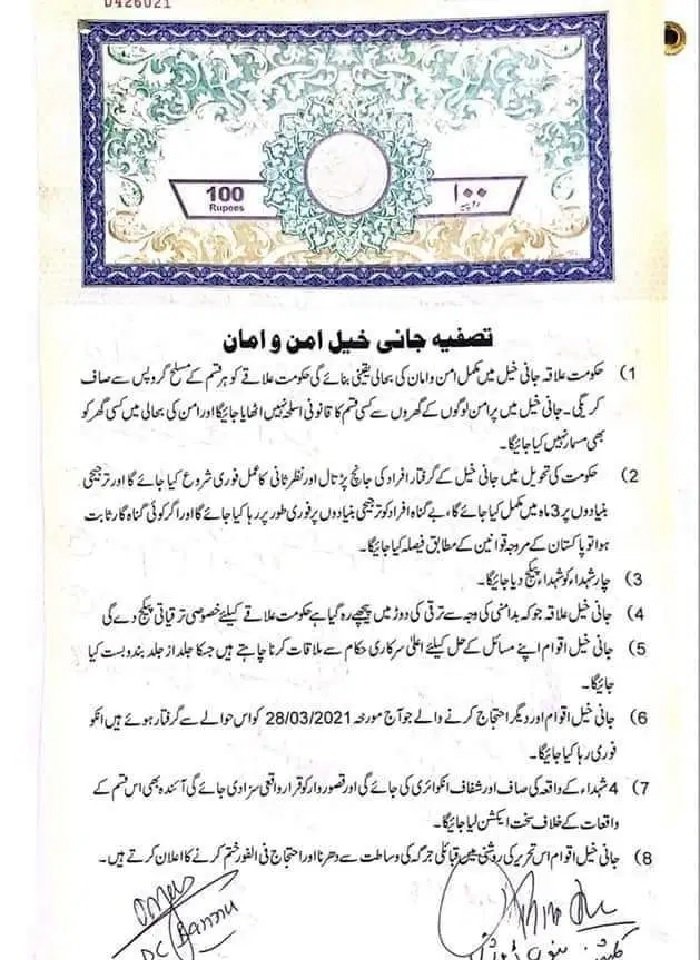 0426021
100
Rupees
۱۰۰
روپیہ
تصفیہ جانی خیل امن و امان
1) حکومت علاقہ جانی خیل میں مکمل امن و امان کی بحالی یقینی بنائے گی حکومت علاقے کو ہر قسم کے مسلح گروپس سے صاف
کریگی۔ جانی خیل میں پرامن لوگوں کے گھروں سے کسی قسم کا قانونی اسلحہ نہیں اٹھایا جائیگا اور امن کی بحالی میں کسی گھر کو
بھی مسمار نہیں کیا جائیگا۔
2) حکومت کی تحویل میں جانی خیل کے گرفتار افراد کی جانچ پڑتال اور نظر ثانی کا عمل فوری شروع کیا جائے گا اور ترجیحی
بنیادوں پر 3 ماہ میں مکمل کیا جائے گا، بے گناہ افراد کو ترجیحی بنیادوں پر فوری طور پر رہا کیا جائے گا اور اگر کوئی گناہ گار ثابت
ہوا تو پاکستان کے مروجہ قوانین کے مطابق فیصلہ کیا جائیگا۔
3) چار شہداء کو شہداء پیکج دیا جائیگا۔
4) جانی خیل علاقہ جو کہ بدامنی کی وجہ سے ترقی کی دوڑ میں پیچھے رہ گیا ہے حکومت علاقے کیلئے خصوصی ترقیاتی پیکج دے گی
5) جانی خیل اقوام اپنے مسائل کے حل کیلئے اعلیٰ سرکاری حکام سے ملاقات کرنا چاہتے ہیں جسکا جلد از جلد بندوبست کیا
جائیگا۔
6) جانی خیل اقوام اور دیگر احتجاج کرنے والے جو آج مورخہ 28/03/2021 کو اس حوالے سے گرفتار ہوئے ہیں انکو
فوری رہا کیا جائیگا۔
7) 4 شہداء کے واقعہ کی صاف اور شفاف انکوائری کی جائے گی اور قصور وار کو قرار واقعی سزا دی جائے گی آئندہ بھی اس قسم کے
واقعات کے خلاف سخت ایکشن لیا جائیگا۔
8) جانی خیل اقوام اس تحریر کی روشنی میں قبائلی جرگہ کی وساطت سے دھرنا اور احتجاج فی الفور ختم کرنے کا اعلان کرتے ہیں۔
DC Bannu
کمشنر بنوں ڈویژن